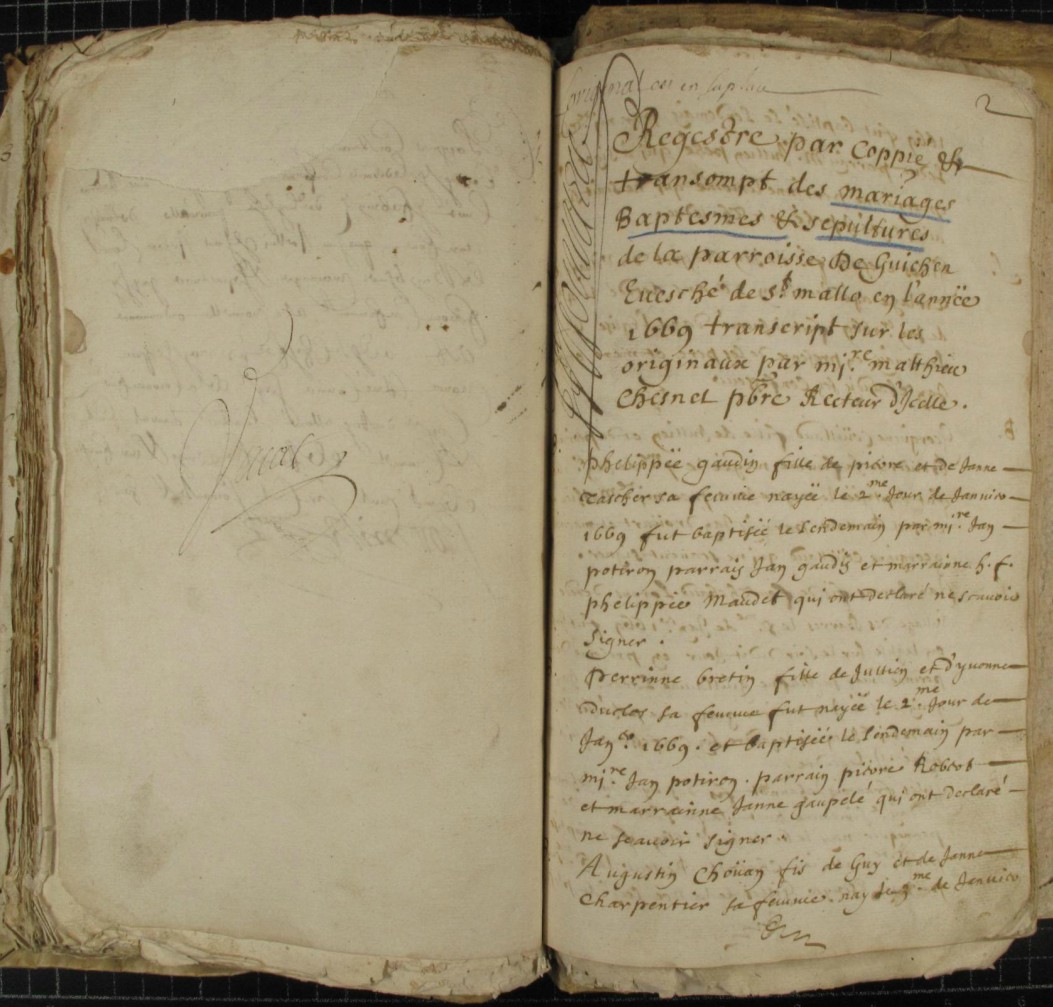 2
Regestre par Coppie et
transompt des mariages
Baptesmes et sepultures
de la parroisse De Guichen
Euesché de St mallo en l'année
1669 transcript sur les
originaux par mi.re matthieu
Chesnel pbre Recteur d'Jcelle.
phelippëe gaudin fille de pierre et de Janne
sa femme nayëe le 2.me Jour de Januier
1669 fut baptisëe le lendemain par mi.re Jan
potiron parrain Jan gaudin et marrainne h. f.
phelippëe Maudet qui ont declaré ne scauoir
signer.
Perrinne bretin fille de Jullien et d'yuonne
sa femme fut nayëe le 2.me Jour de
Jan.er 1669. et baptisëe le lendemain par
mi.re Jan potiron. parrain pierre Robert
et marrainne Janne gaupelé qui ont declaré
ne scauoir signer.
Augustin Choüan fis de Guy et de Janne
Charpentier sa femme. nay le me de Januier